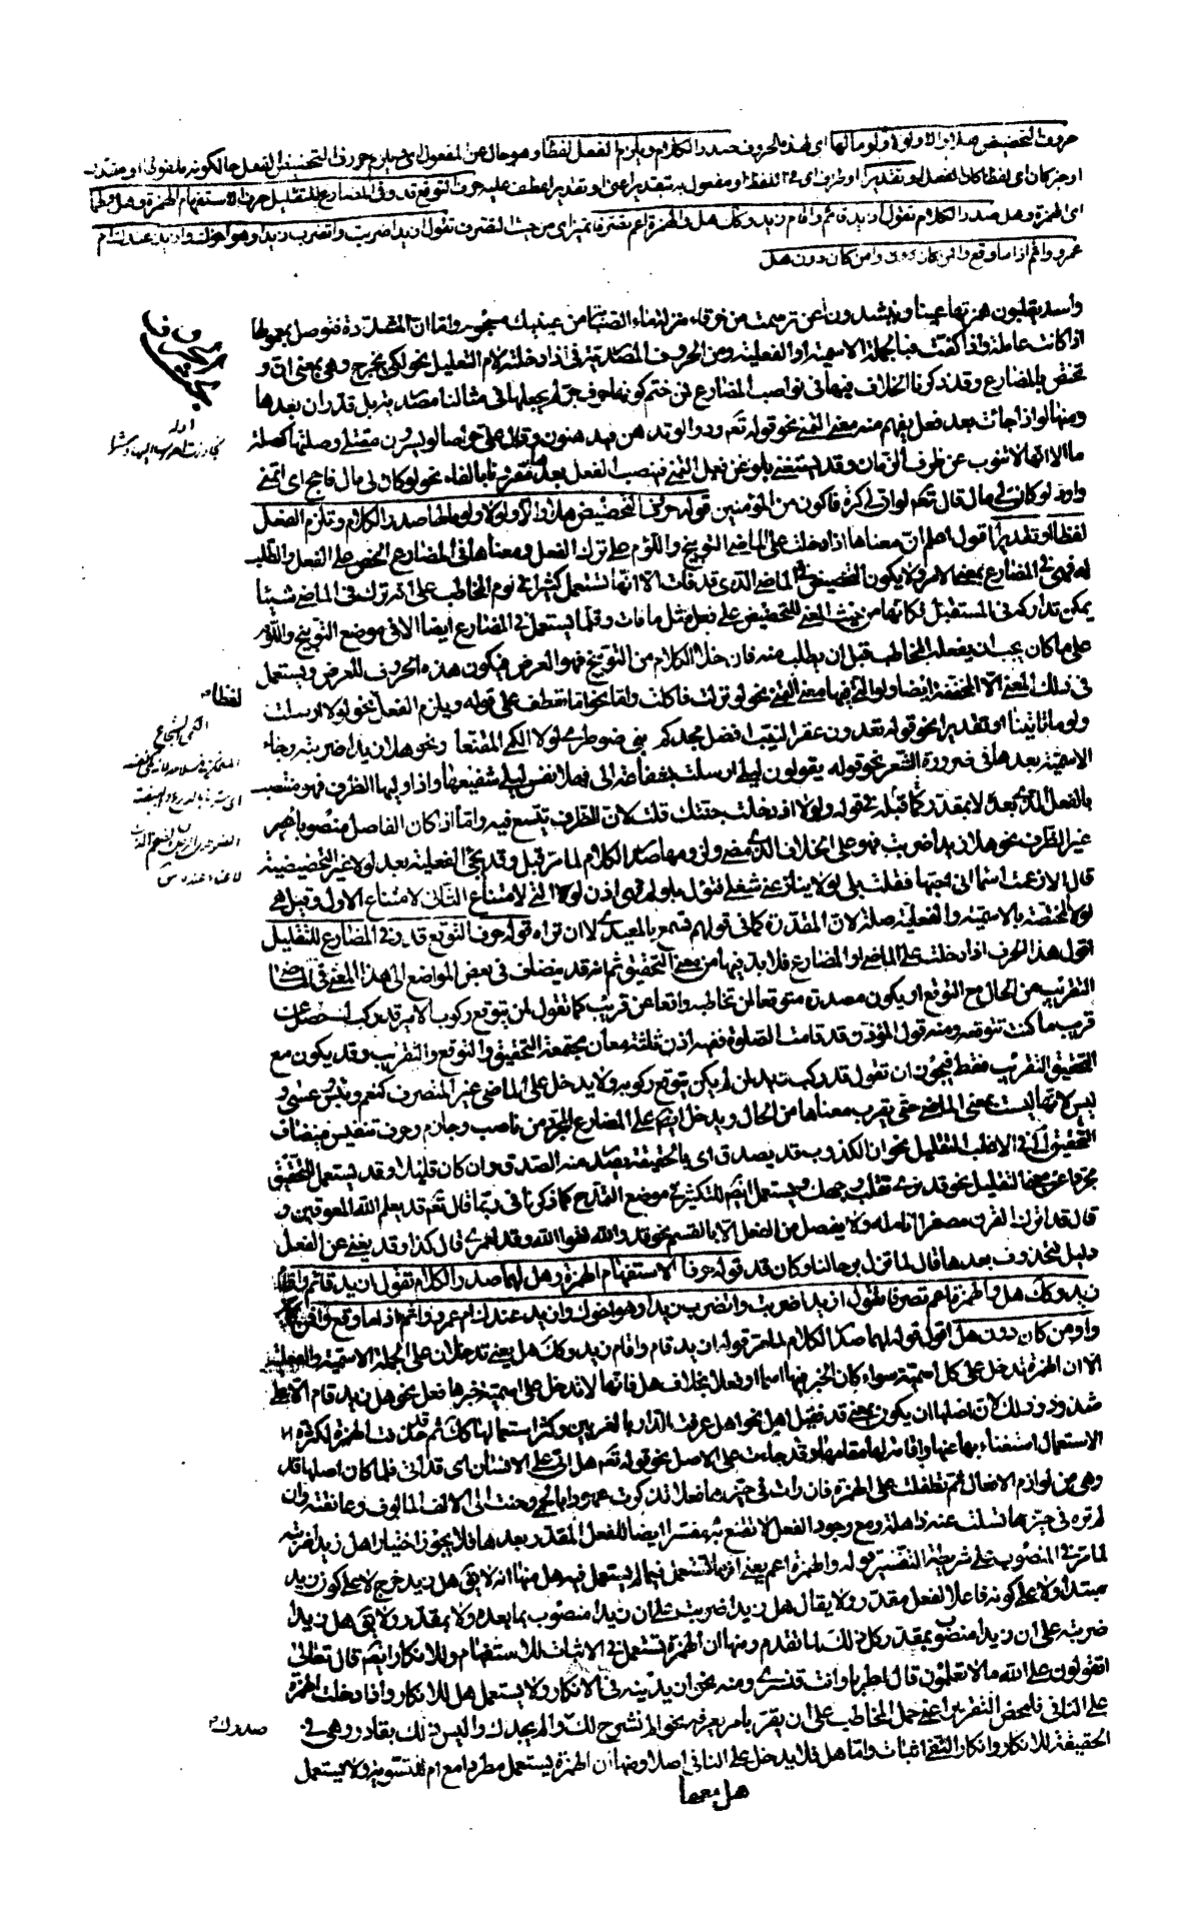 حروف التحضيض هلا والا ولولا ولوما لها اى لهذه الحروف صدر الكلام ويلزم الفعل لفظا وهو حال عن المفعول اى ويلزم حروف التحضيض الفعل حال كونه ملفوظا او مقدرا
او خبر كان اى لفظا كان الفعل او تقديرا او ظرف اى فى اللفظ او مفعول به بتقدير اعنى او تقديرا عطف عليه حرف التوقع قد وفى المضارع للتقليل حرفا الاستفهام الهمزة وهل لهما
اى الهمزة وهل صدر الكلام تقول ازيد قائم واقام زيد وكذلك هل والهمزة اعم تصرفا تميز اى من حيث التصرف تقول ازيدا ضربت واتضرب زيدا وهو اخوك وازيد عندك ام
عمرو واثم اذا ما وقع وافمن كان واومن كان دون هل
واسد يقلبون همزتها عينا وينشدون اعن ترسمت من خرقاء منزلة ماء الصبابة من عينيك مسجوم واما ان المشددة فتوصل بمعمولها
اذا كانت عاملة واذا كفت فبالجملة الاسمية او الفعلية ومن الحروف المصدرية كى اذا دخلته لام التعليل نحو لكى يخرج وهى بمعنى ان و
تختص بالمضارع وقد ذكرنا الخلاف فيها فى نواصب المضارع فمن حتم كونها حرف جر لم يجعلها فى مثالنا مصدرية بل قدر ان بعدها
ومنها لو اذا جائت بعد فعل يفهم منه معنى التمنى نحو قوله تعم ودوا لو تدهن فيدهنون
ما الا انها لا تنوب عن ظرف الزمان وقد يستغنى بلو عن فعل التمنى فينصب الفعل بعد مقرونا بالفاء نحو لو كان لى مال فاحج اى اتمنى
واود لو كان لى مال قال تعم لو ان لى كرة فاكون من المؤمنين قوله حروف التحضيض هلا والا ولولا ولوما لها صدر الكلام وتلزم الفعل
لفظا او تقديرا اقول اعلم ان معناها اذا دخلت على الماضى التوبيخ واللوم على ترك الفعل ومعناها فى المضارع الحض على الفعل والطلب
له فهى فى المضارع بمعنى الامر ولا يكون التحضيض فى الماضى الذى قد فات الا انها تستعمل كثيرا فى لوم المخاطب على انه ترك فى الماضى شيئا
يمكن تداركه فى المستقبل فكانها من حيث المعنى للتحضيض على فعل مثل ما فات وقلما يستعمل فى المضارع ايضا الا فى موضع التوبيخ واللوم
على ما كان يجب ان يفعله المخاطب قبل ان يطلب منه فان خلا الكلام من التوبيخ فهو العرض فيكون هذه الحروف للعرض ويستعمل
فى ذلك المعنى الا المخففة ايضا ولو التى فيها معنى التمنى نحو لو نزلت فاكلت
ولو ما تاتينا او تقديرا نحو قوله تعدون عقر النيب افضل مجدكم بنى ضوطرى لولا الكمى المقنعا ونحو هلا زيدا ضربته وجاء
الاسمية بعدها فى ضرورة الشعر نحو قوله يقولون ليلى ارسلت بشفاعة الى فهلا نفس ليلى شفيعها واذا وليها الظرف فهو منتصب
بالفعل الذى بعده لا بمقدر كما قبله فى قوله ولولا اذ دخلت جنتك قلت لان الظرف يتسع فيه واما اذا كان الفاصل منصوبا
غير الظرف نحو هلا زيدا ضربت فهو على الخلاف الذى مضى ولزومها صدر الكلام لما مر قبل وقد يجئ الفعلية بعد لولا غير التحضيضية
قال الا زعمت اسماء ان لا احبها فقلت بلى لولا ينازعنى شغلى فتؤل بلو لم فهى اذن لولا التى لامتناع الثانى لامتناع الاول وقيل هى
لولا المختصة بالاسمية والفعلية صلة لان المقدرة كما فى قولهم تسمع بالمعيدى لا ان تراه قوله حرف التوقع قد وفى المضارع للتقليل
اقول هذا الحرف اذا دخلت على الماضى او المضارع فلا بد فيها من معنى التحقيق ثم انه قد يضاف فى بعض المواضع الى هذا المعنى فى الماضى
التقريب من الحال مع التوقع اى يكون مصدره متوقعا لمن تخاطبه واقعا عن قريب كما تقول لمن يتوقع ركوب الامير قد ركب اى حصل عن
قريب ما كنت تتوقعه ومنه قول المؤذن قد قامت الصلوة ففيه اذن ثلثة معان مجتمعة التحقيق والتوقع والتقريب وقد يكون مع
التحقيق التقريب فقط فيجوز ان تقول قد ركب زيد لمن لم يكن يتوقع ركوبه ولا يدخل على الماضى غير المتصرف كنعم وبئس وعسى و
ليس لانها ليست بمعنى الماضى حتى يقرب معناها من الحال ويدخل ايضم على المضارع المجرد من ناصب وجازم وحرف تنفيس فينضاف
التحقيق فى الاغلب التقليل نحو ان الكذوب قد يصدق اى بالحقيقة يصدر منه الصدق وان كان قليلا وقد يستعمل للتحقيق
مجردا عن معنى التقليل نحو قد نرى تقلب وجهك ويستعمل ايضم للتكثير فى موضع التمدح كما ذكرنا فى ربما قال تعم قد يعلم الله المعوقين و
قال قد اترك القرن مصفرا انامله ولا يفصل من الفعل الا بالقسم نحو قد والله لقوا الله وقد لعمرى قال كذا وقد يغنى عن الفعل
دليل فيحذف بعدها قال لما تزل برحالنا وكان قد قوله حرفا الاستفهام الهمزة وهل لهما صدر الكلام تقول ازيد قائم واقام
زيد وكذلك هل والهمزة اعم تصرفا تقول ازيدا ضربت واتضرب زيدا وهو اخوك وازيد عندك ام عمرو واثم اذا ما وقع وافمن كان
واومن كان دون هل اقول قوله لهما صدر الكلام لما مر قوله ازيد قام واقام زيد وكذلك هل يعنى تدخلان على الجملة الاسمية والفعلية
الا ان الهمزة تدخل على كل اسمية سواء كان الخبر فيها اسما او فعلا بخلاف هل فانها لا تدخل على اسمية خبرها فعل نحو هل زيد قام الا على
شذوذ وذلك لان اصلها ان يكون بمعنى قد فقيل اهل نحو اهل عرفت الدار بالغريين وكثر استعمالها كذلك ثم حذفت الهمزة لكثرة
الاستعمال استغناء بها عنها واقامة لها مقامها وقد جاءت على الاصل نحو قوله تعم هل اتى على الانسان اى قد اتى فلما كان اصلها قد
وهى من لوازم الافعال ثم تطفلت على الهمزة فان رات فى حيزها فعلا تذكرت عهودا بالحمى وحنت الى الالف المالوف وعانقته وان
لم تره فى حيزها تسلت عنه ذاهلة ومع وجود الفعل لا تقنع به مفسرا ايضا للفعل المقدر بعدها فلا يجوز اختيارا هل زيدا ضربته
لما مر فى المنصوب على شريطة التفسير قوله والهمزة اعم يعنى انها تستعمل فيما لم يستعمل فيه هل منها انه لا يق هل زيد خرج لا على كون زيد
مبتدا ولا على كونه فاعلا لفعل مقدر ولا يقال هل زيدا ضربت على ان زيدا منصوب بما بعده ولا بمقدر ولا يق هل زيدا
ضربته على ان زيدا منصوب بمقدر كل ذلك لما تقدم ومنها ان الهمزة تستعمل فى الاثبات للاستفهام وللانكار ايضم قال تعالى
اتقولون على الله ما لا تعلمون قال اطربا وانت قنسرى ومنه نحو ازيدنيه فى الانكار ولا يستعمل هل للانكار واذا دخلت الهمزة
على النافى فلمحض التقرير اعنى حمل المخاطب على ان يقر بامر يعرفه نحو الم نشرح لك والم يجدك واليس ذلك بقادر وهى فى
الحقيقة للانكار وانكار النفى اثبات واما هل فلا يدخل على النافى اصلا ومنها ان الهمزة يستعمل مطردا مع ام للتسوية ولا يستعمل
هل معها
لفظا